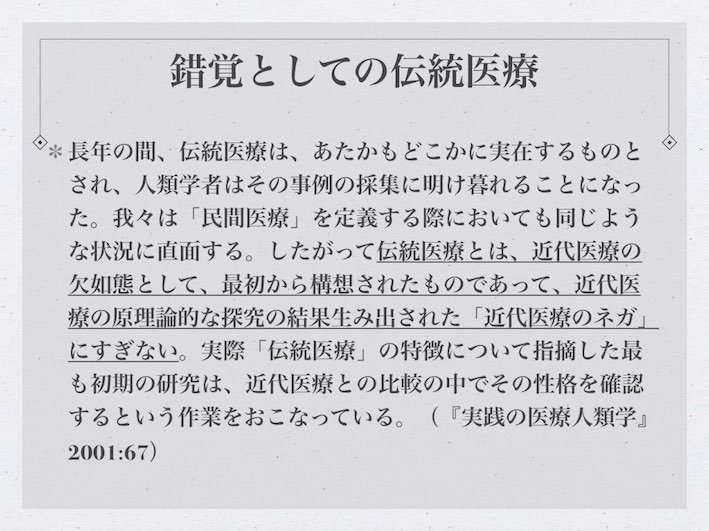 錯覚としての伝統医療
長年の間、伝統医療は、あたかもどこかに実在するものと
され、人類学者はその事例の採集に明け暮れることになっ
た。我々は「民間医療」を定義する際においても同じよう
な状況に直面する。したがって伝統医療とは、近代医療の
欠如態として、最初から構想されたものであって、近代医
療の原理論的な探究の結果生み出された「近代医療のネガ」
にすぎない。実際「伝統医療」の特徴について指摘した最
も初期の研究は、近代医療との比較の中でその性格を確認
するという作業をおこなっている。（『実践の医療人類学』
2001:67）